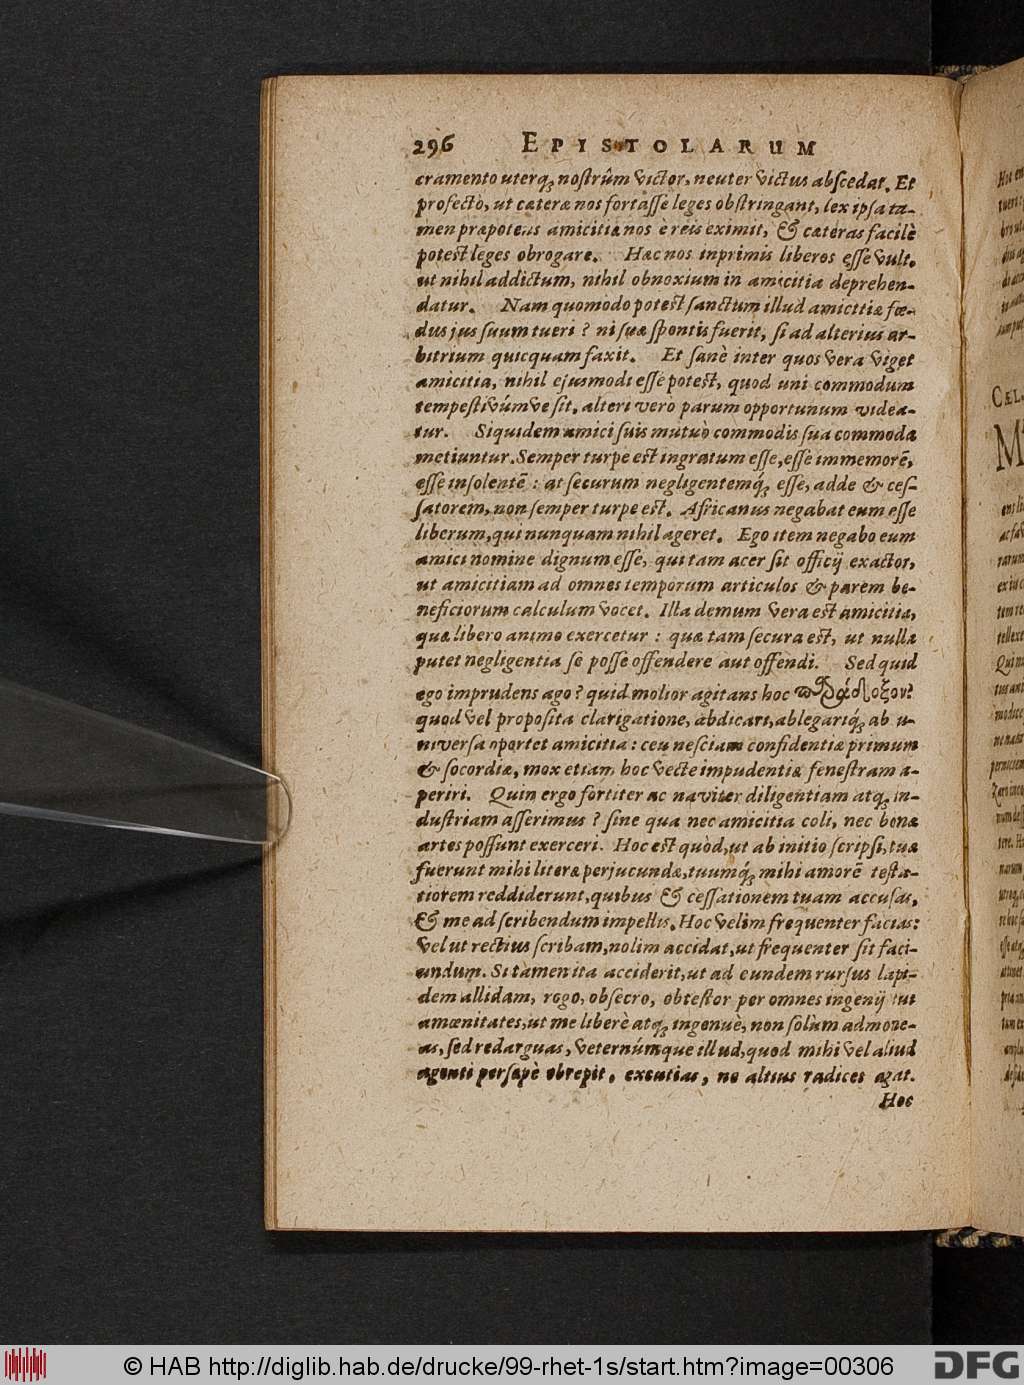 296 EPISTOLARUM
cramento uterq; nostrûm victor, neuter victus abscedat. Et
profectò, ut cæteræ nos fortasse leges obstringant, lex ipsa ta-
men præpotens amicitiæ nos è reis eximit, & cæteras facilè
potest leges obrogare. Hæc nos inprimis liberos esse vult.
ut nihil addictum, nihil obnoxium in amicitia deprehen-
datur. Nam quomodo potest sanctum illud amicitiæ fœ-
dus jus suum tueri? ni suæ spontis fuerit, si ad alterius ar-
bitrium quicquam faxit. Et sanè inter quos vera viget
amicitia, nihil ejusmodi esse potest, quod uni commodum
tempestivúmve sit, alteri vero parum opportunum videa-
tur. Siquidem amici suis mutuò commodis sua commoda
metiuntur. Semper turpe est ingratum esse, esse immemorē,
esse insolentē: at securum negligentemq́; esse, adde & ces-
satorem, non semper turpe est. Africanus negabat eum esse
liberum, qui nunquam nihil ageret. Ego item negabo eum
amici nomine dignum esse, qui tam acer sit officij exactor,
ut amicitiam ad omnes temporum articulos & parem be-
neficiorum calculum vocet. Illa demum vera est amicitia,
quæ libero animo exercetur: quæ tam secura est, ut nulla
putet negligentia se posse offendere aut offendi. Sed quid
ego imprudens ago? quid molior agitans hoc παράδοξον?
quod vel proposita clarigatione, abdicari, ablegariq́; ab u-
niversa oportet amicitia: ceu nesciam confidentiæ primum
& socordiæ, mox etiam hoc vecte impudentiæ fenestram a-
periri. Quin ergo fortiter ac naviter diligentiam atq; in-
dustriam asserimus? sine qua nec amicitia coli, nec bonæ
artes possunt exerceri. Hoc est quòd, ut ab initio scripsi, tuæ
fuerunt mihi literæ perjucundæ, tuumq́; mihi amorē testa-
tiorem reddiderunt, quibus & cessationem tuam accusas,
& me ad scribendum impellis. Hoc velim frequenter facias:
vel ut rectius scribam, nolim accidat, ut frequenter sit faci-
undum. Si tamen ita acciderit, ut ad eundem rursus lapi-
dem allidam, rogo, obsecro, obtestor per omnes ingenij tui
amœnitates, ut me liberè atq; ingenuè, non solùm admone-
as, sed redarguas, veternúmque illud, quod mihi vel aliud
agenti persæpè obrepit, excutias, ne altius radices agat.
Hoc
© HAB http://diglib.hab.de/drucke/99-rhet-1s/start.htm?image=00306
DFG